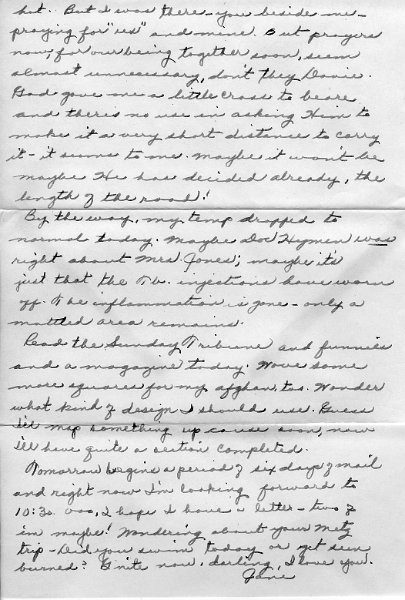 hot. But I was there - you beside me -
praying for "us" and mine. But prayers
now, for our being together soon, seem
almost unnecessary, don't they Davie.
God gave me a little cross to beare
and there's no use in asking Him to
make it a very short distance to carry
it - it seems to me. Maybe it won't be
maybe He has decided already, the
length of the road!
By the way, my temp dropped to
normal today. Maybe Doc Hymen was
right about Mrs Jones; maybe it's
just that the Tb. injections have worn
off. The inflammation is gone - only a
mottled area remains.
Read the Sunday Tribune and funnies
and a magazine today. Wove some
more squares for my afghan, too. Wonder
what kind of design I should use. Guess
I'll map something up cause soon, now
I'll have quite a section completed.
Tomorrow begins a period of six days of mail
and right now I'm looking forward to
10:30. Ooo, I hope I have a letter - two of
'em maybe! Wondering about your Metz
trip - Did you swim today or get sun
burned? G'nite now, darling, I love you.
Jane